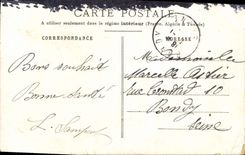 CARTE POSTALE
A utiliser seulement dans le régime intérieur (France, Algérie & Tunisie)
CORRESPONDANCE
ADRESSE
Bons souhaits
Bonne Santé
Mademoiselle
Marcelle
Rue 10
Bondy
Seine